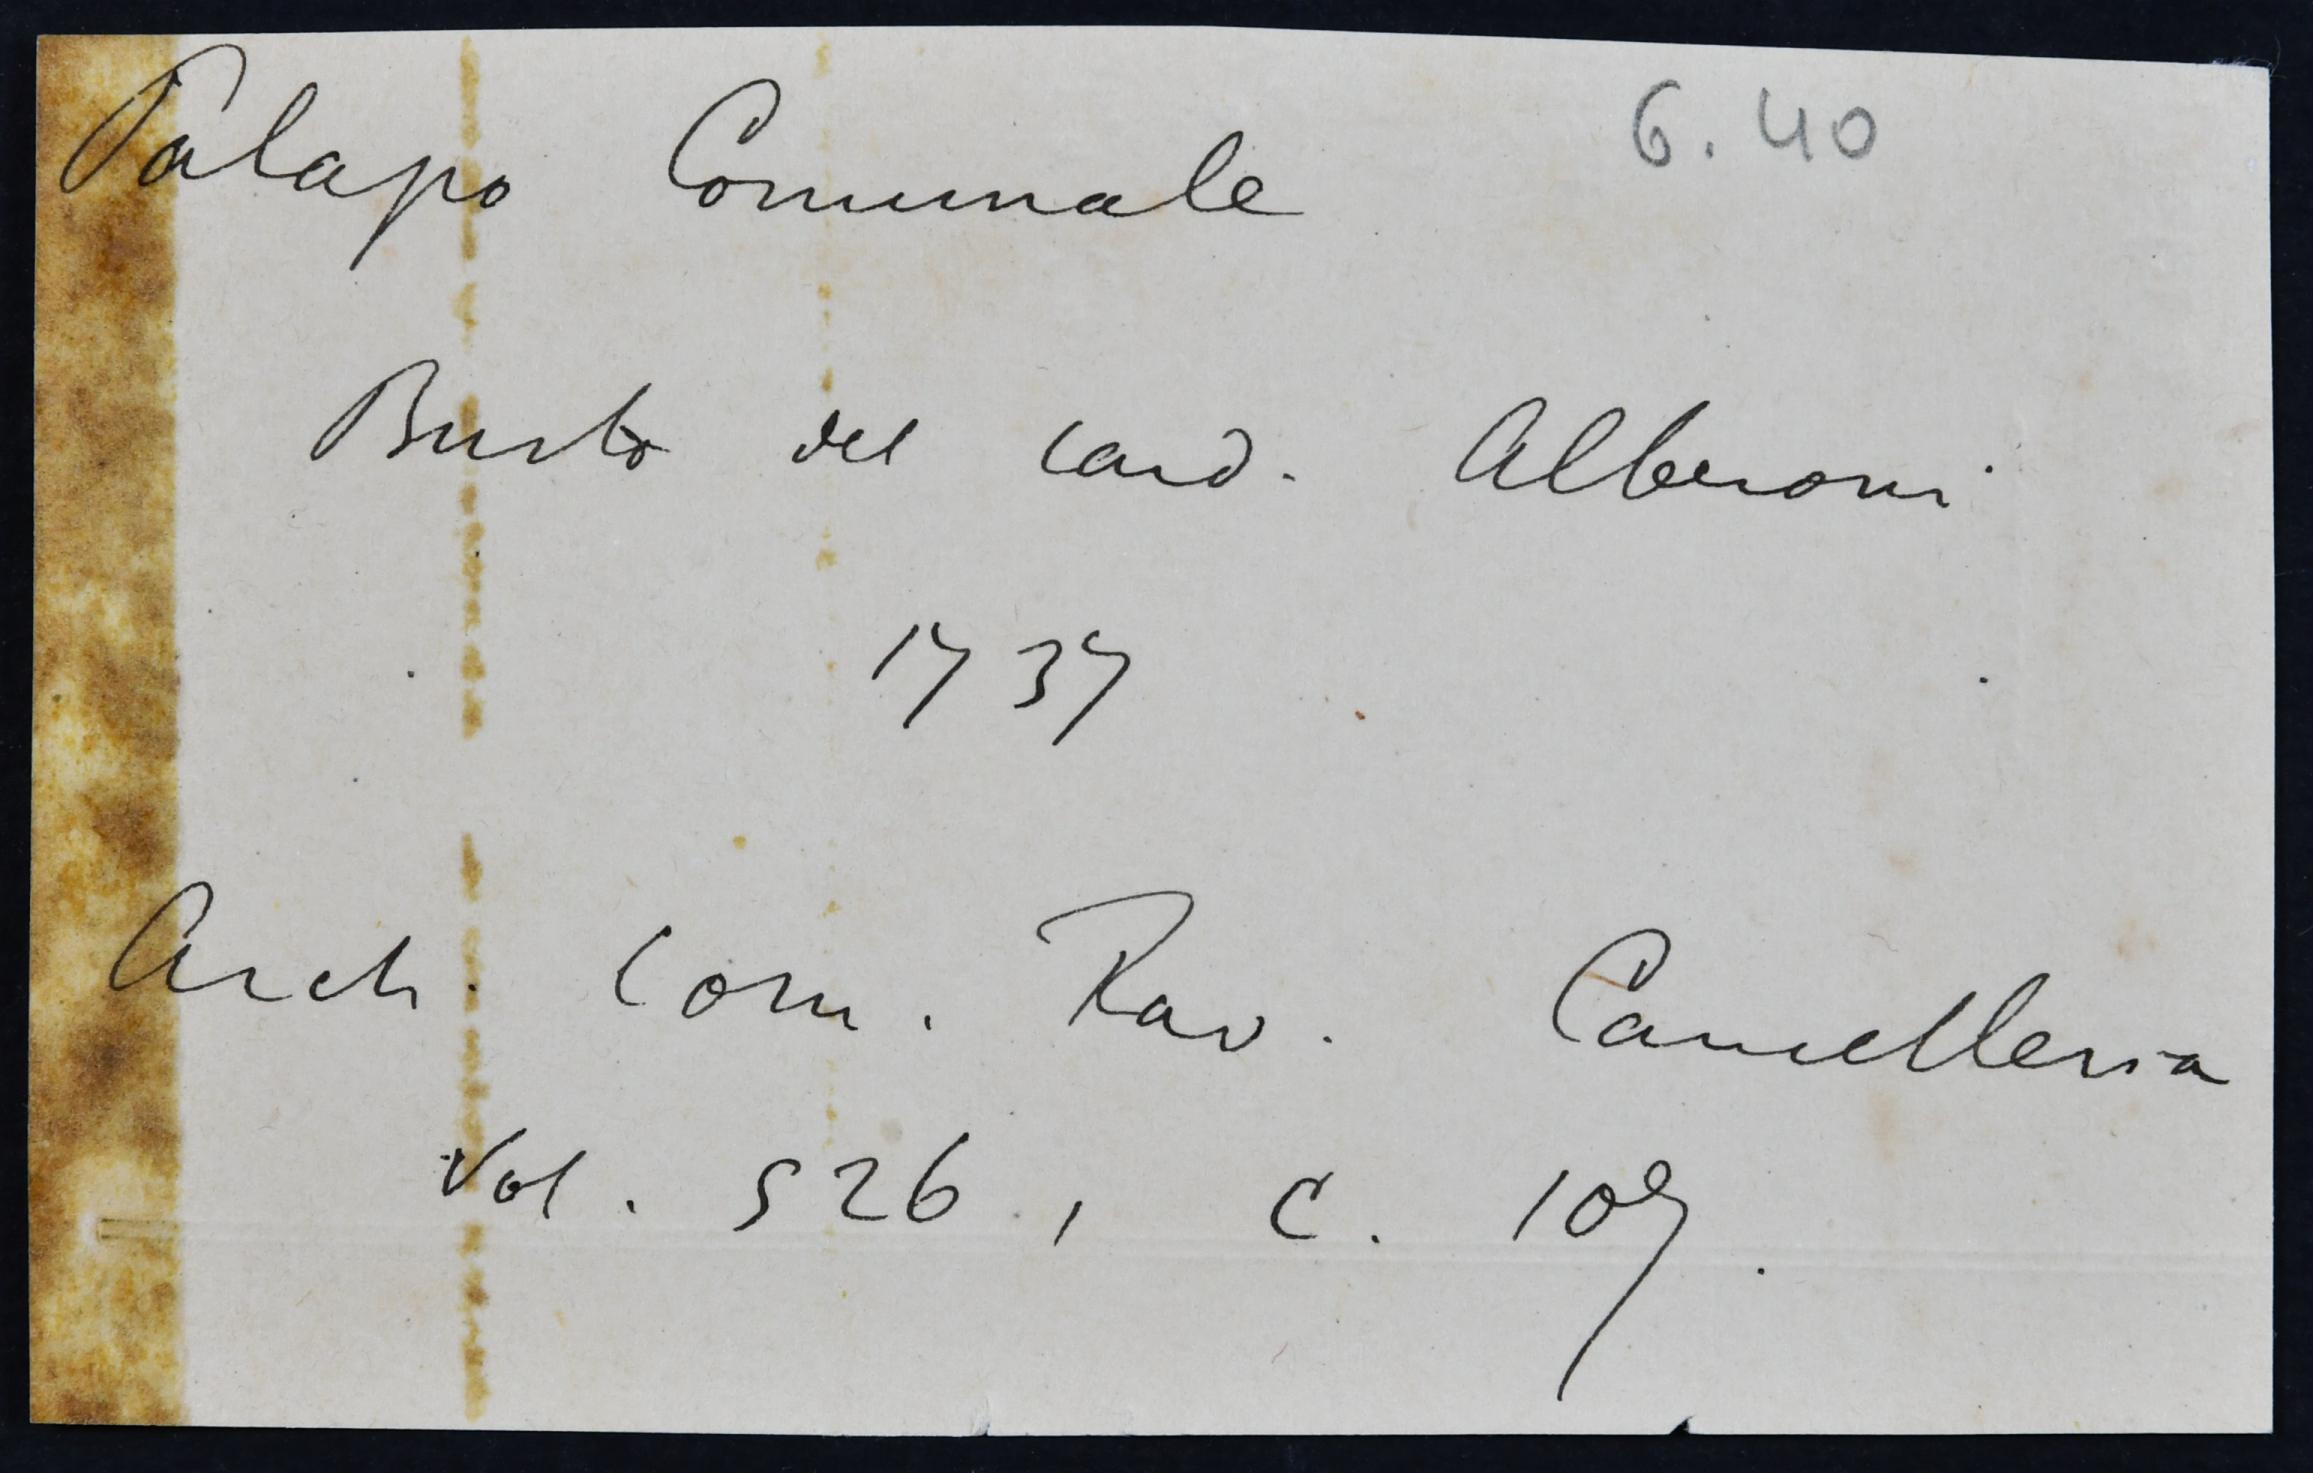 Palazzo Comunale 6.40
Busto del card. Alberoni
1737
Arch. Com. Rav. Cancelleria
Vol. 526, c. 109.